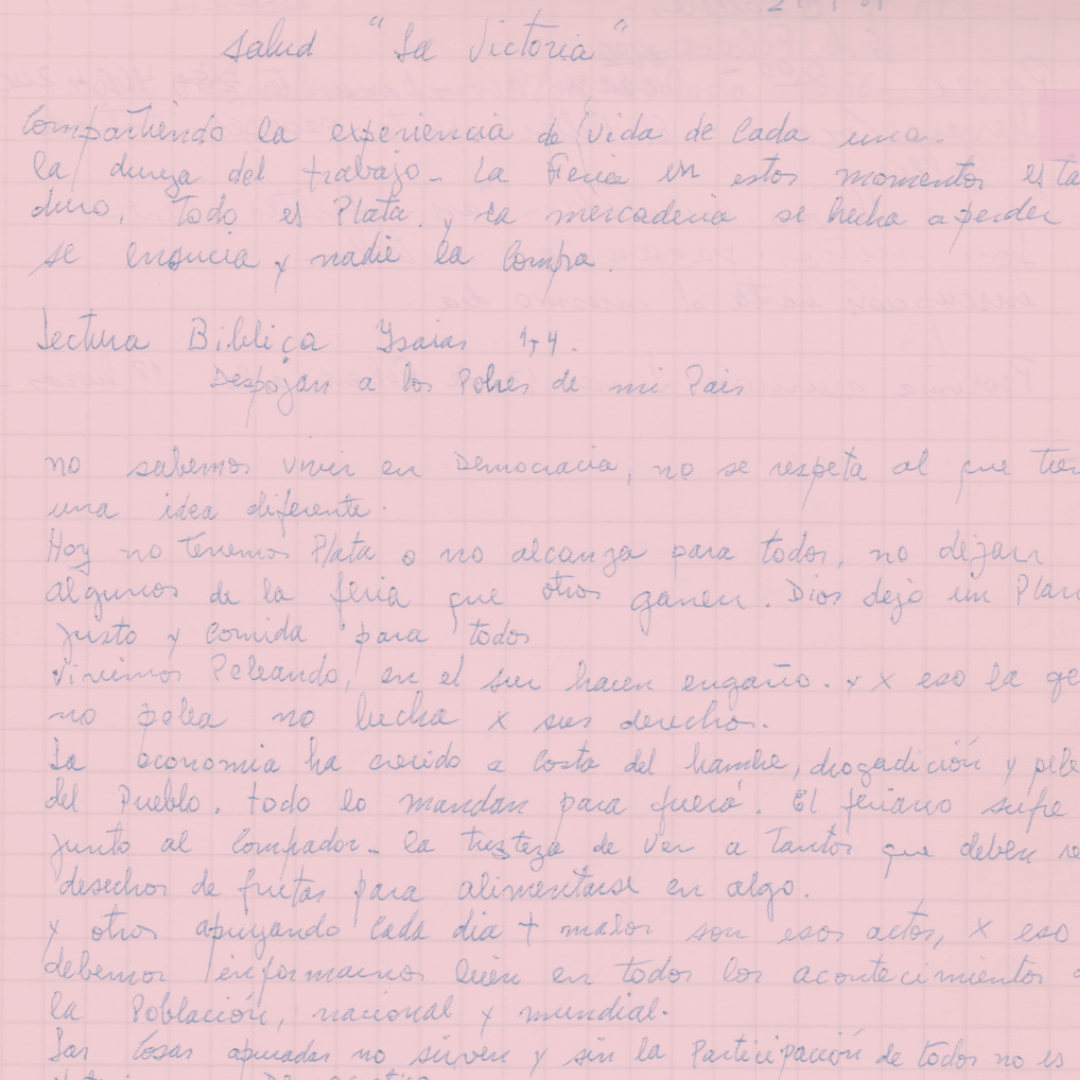 salud "La Victoria"
Compartiendo la experiencia de vida de cada una.
la dureza del trabajo - La Feria en estos momentos esta
duro, Todo es Plata. y la mercaderia se hecha a perder
se ensucia y nadie la compra.
Lectura Biblica Isaias 1,4.
Despojan a los Pobres de mi Pais
no sabemos vivir en Democracia, no se respeta al que tien
una idea diferente.
Hoy no Tenemos Plata o no alcanza para todos, no dejan
algunos de la feria que otros ganen. Dios dejó un Plan
justo y comida para todos
vivimos Peleando, en el sur hacen engaño. y x eso la ge
no pelea no lucha x sus derechos.
La economia ha crecido a costa del hambre, drogadición y pele
del Pueblo. todo lo mandan para fuera. El feriano sufre
junto al comprador - la tristeza de ver a tantos que deben re
desechos de frutas para alimentarse en algo.
y otros apuyando cada dia + malos son esos actos, x eso
debemos informarnos bien en todos los acontecimientos
la Población, nacional y mundial.
Las cosas apuradas no sirven y sin la Participación de todos no es